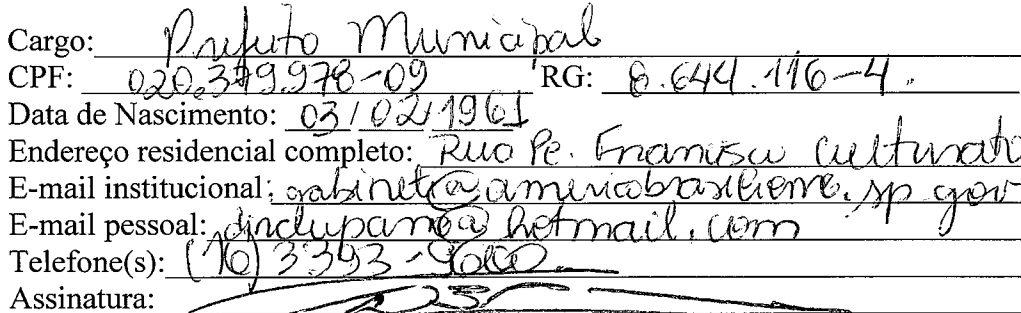 Cargo: Prefeito Municipal
CPF: 020.379.978-09 RG: 8.644.116-4.
Data de Nascimento: 03/02/1961
Endereço residencial completo: Rua Pe. Francisco Culturato
E-mail institucional: gabinete@americobrasiliense.sp.gov
E-mail pessoal: @hotmail.com
Telefone(s): (16) 3393-9600
Assinatura: